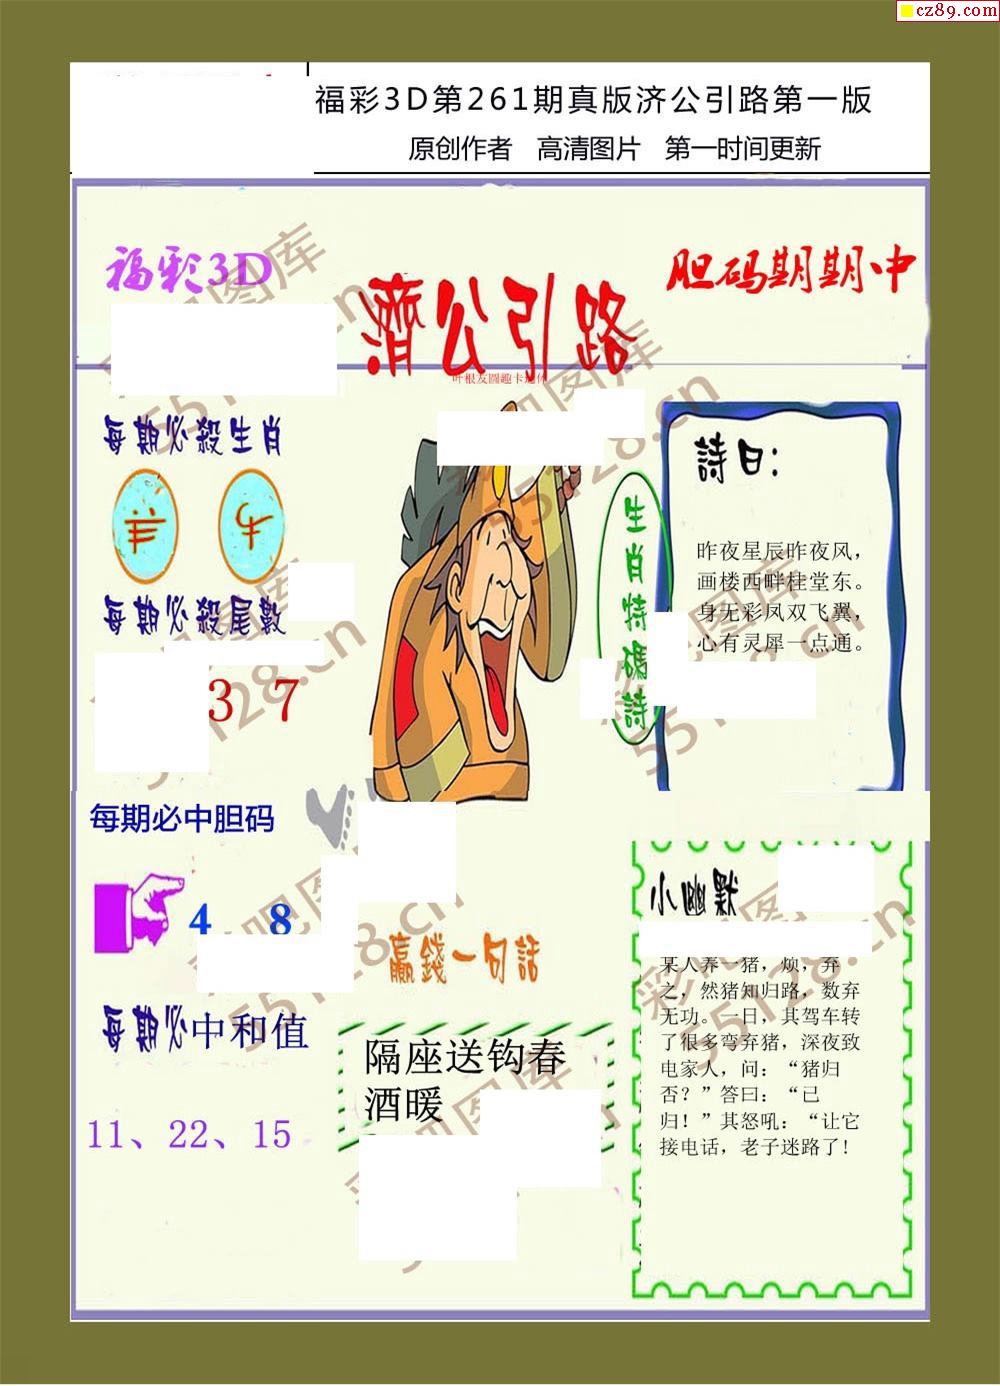 cz89.com
福彩3D第261期真版济公引路第一版
原创作者 高清图片 第一时间更新
福彩3D
濟公引路
胆码期期中
叶根友圆趣卡通体
每期必殺生肖
羊 牛
每期必殺尾數
3 7
每期必中胆码
4 8
每期必中和值
11、22、15
生肖特碼詩
詩曰：
昨夜星辰昨夜风，
画楼西畔桂堂东。
身无彩凤双飞翼，
心有灵犀一点通。
贏錢一句話
隔座送钩春
酒暖
小幽默
某人养一猪，烦，弃
之，然猪知归路，数弃
无功。一日，其驾车转
了很多弯弃猪，深夜致
电家人，问：“猪归
否？”答曰：“已
归！”其怒吼：“让它
接电话，老子迷路了!
彩吧图库
55128.cn